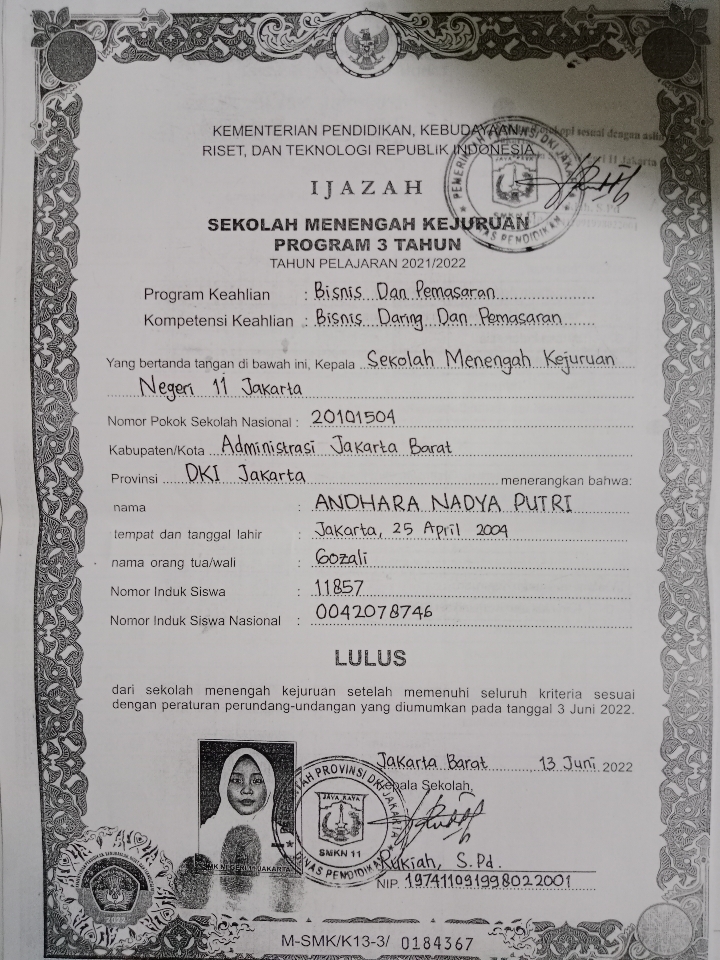 KEMENTERIAN PENDIDIKAN, KEBUDAYAAN,
RISET, DAN TEKNOLOGI REPUBLIK INDONESIA
sesuai dengan
11 Jakarta
S. Pd
PEMERINTAH PROVINSI DKI JAKARTA
JAYA RAYA
SMKN 11
DINAS PENDIDIKAN
IJAZAH
SEKOLAH MENENGAH KEJURUAN
PROGRAM 3 TAHUN
TAHUN PELAJARAN 2021/2022
Program Keahlian : Bisnis Dan Pemasaran
Kompetensi Keahlian : Bisnis Daring Dan Pemasaran
Yang bertanda tangan di bawah ini, Kepala Sekolah Menengah Kejuruan
Negeri 11 Jakarta
Nomor Pokok Sekolah Nasional : 20101504
Kabupaten/Kota Administrasi Jakarta Barat
Provinsi DKI Jakarta menerangkan bahwa:
nama : ANDHARA NADYA PUTRI
tempat dan tanggal lahir : Jakarta, 25 April 2004
nama orang tua/wali : Gozali
Nomor Induk Siswa : 11857
Nomor Induk Siswa Nasional : 0042078746
LULUS
dari sekolah menengah kejuruan setelah memenuhi seluruh kriteria sesuai
dengan peraturan perundang-undangan yang diumumkan pada tanggal 3 Juni 2022.
Jakarta Barat, 13 Juni 2022
Kepala Sekolah,
PROVINSI DKI JAKARTA
JAYA RAYA
SMKN 11
DINAS PENDIDIKAN
Rukiah, S.Pd.
NIP. 197411091998022001
2022
M-SMK/K13-3/ 0184367